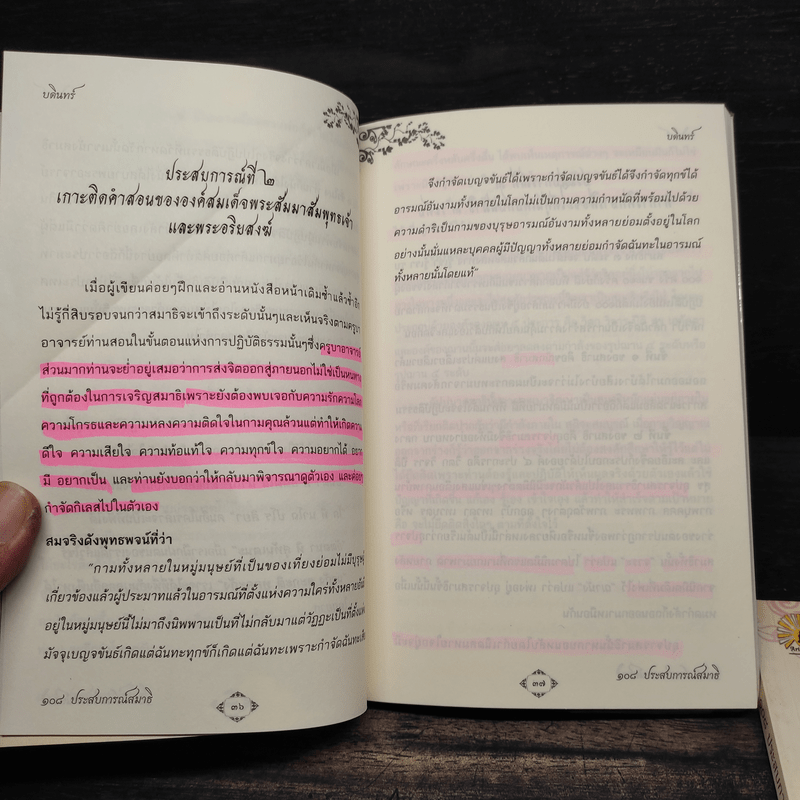 บดินทร์
ประสบการณ์ที่ ๒
เกาะติดคำสอนขององค์สมเด็จพระสัมมาสัมพุทธเจ้า
และพระอริยสงฆ์
เมื่อผู้เขียนค่อยๆฝึกและอ่านหนังสือหน้าเดิมซ้ำแล้วซ้ำอีก
ไม่รู้กี่สิบรอบจนกว่าสมาธิจะเข้าถึงระดับนั้นๆและเห็นจริงตามครูบา
อาจารย์ท่านสอนในขั้นตอนแห่งการปฏิบัติธรรมนั้นๆซึ่งครูบาอาจารย์
ส่วนมากท่านจะย้ำอยู่เสมอว่าการส่งจิตออกสู่ภายนอกไม่ใช่เป็นหนทาง
ที่ถูกต้องในการเจริญสมาธิเพราะยังต้องพบเจอกับความรักความโลภ
ความโกรธและความหลงความติดใจในกามคุณล้วนแต่ทำให้เกิดความ
ดีใจ ความเสียใจ ความท้อแท้ใจ ความทุกข์ใจ ความอยากได้ อยาก
มี อยากเป็น และท่านยังบอกว่าให้กลับมาพิจารณาดูตัวเอง และค่อยๆ
กำจัดกิเลสไปในตัวเอง
สมจริงดังพุทธพจน์ที่ว่า
“กามทั้งหลายในหมู่มนุษย์ที่เป็นของเที่ยงย่อมไม่มีบุรุษผู้
เกี่ยวข้องแล้วผู้ประมาทแล้วในอารมณ์ที่ตั้งแห่งความใคร่ทั้งหลายอันมี
อยู่ในหมู่มนุษย์นี้ไม่มาถึงนิพพานเป็นที่ไม่กลับมาแต่วัฏฏะเป็นที่ตั้งแห่ง
มัจจุเบญจขันธ์เกิดแต่ฉันทะทุกข์ก็เกิดแต่ฉันทะเพราะกำจัดฉันทะเสีย
๑๐๘ ประสบการณ์สมาธิ
๓๖
บดินทร์
จึงกำจัดเบญจขันธ์ได้เพราะกำจัดเบญจขันธ์ได้จึงกำจัดทุกข์ได้
อารมณ์อันงามทั้งหลายในโลกไม่เป็นกามความกำหนัดที่พร้อมไปด้วย
ความดำริเป็นกามของบุรุษอารมณ์อันงามทั้งหลายย่อมตั้งอยู่ในโลก
อย่างนั้นนั่นแหละบุคคลผู้มีปัญญาทั้งหลายย่อมกำจัดฉันทะในอารมณ์
ทั้งหลายนั้นโดยแท้”
๓๗
๑๐๘ ประสบการณ์สมาธิ